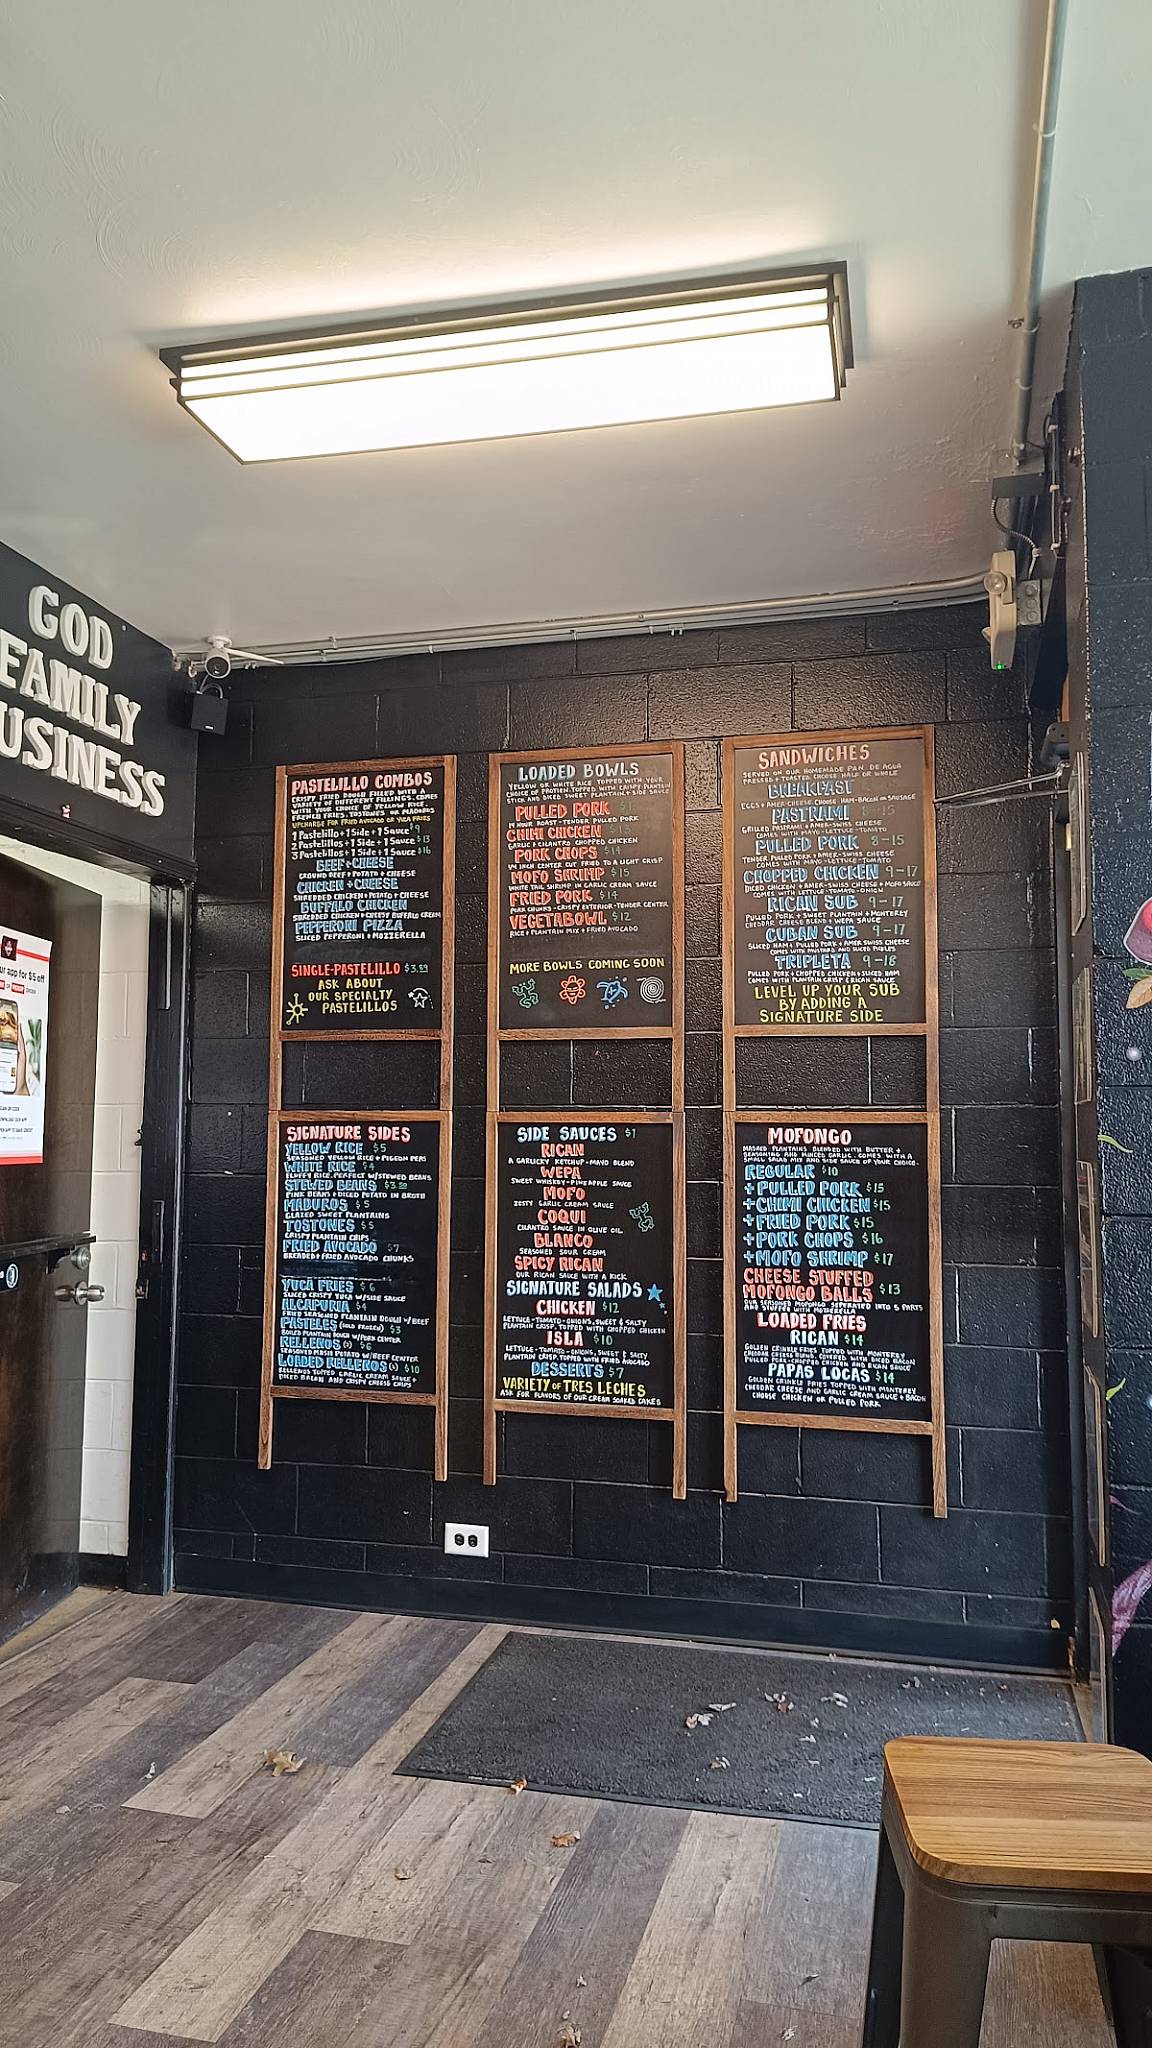 GOD
FAMILY
BUSINESS
ur app for $5 off
PASTELILLO COMBOS
CRISPY FRIED DOUGH FILLED WITH A
VARIETY OF DIFFERENT FILLINGS. COMES
WITH YOUR CHOICE OF YELLOW RICE,
FRENCH FRIES, TOSTONES OR MADUROS
UPCHARGE FOR FRIED AVOCADO OR YUCA FRIES
1 Pastelillo+1 Side+1 Sauce $9
2 Pastelillos+1 Side+1 Sauce $13
3 Pastelillos+1 Side+1 Sauce $16
BEEF+CHEESE
GROUND BEEF+POTATO+CHEESE
CHICKEN+CHEESE
SHREDDED CHICKEN+POTATO+CHEESE
BUFFALO CHICKEN
SHREDDED CHICKEN+CHEESY BUFFALO CREAM
PEPPERONI PIZZA
SLICED PEPPERONI+MOZZERELLA
SINGLE-PASTELILLO $3.99
ASK ABOUT
OUR SPECIALTY
PASTELILLOS
LOADED BOWLS
YELLOW OR WHITE RICE TOPPED WITH YOUR
CHOICE OF PROTIEN. TOPPED WITH CRISPY PLANTAIN
STICK AND DICED SWEET PLANTAIN+SIDE SAUCE
PULLED PORK
14 HOUR ROAST-TENDER PULLED PORK
CHIMI CHICKEN $13
GARLIC+CILANTRO CHOPPED CHICKEN
PORK CHOPS $14
1/4 INCH CENTER CUT FRIED TO A LIGHT CRISP
MOFO SHRIMP $15
WHITE TAIL SHRIMP IN GARLIC CREAM SAUCE
FRIED PORK $14
PORK CHUNKS-CRISPY EXTERIOR-TENDER CENTER
VEGETABOWL $12
RICE+PLANTAIN MIX+FRIED AVOCADO
MORE BOWLS COMING SOON
SANDWICHES
SERVED ON OUR HOMEMADE PAN DE AGUA
PRESSED+TOASTED. CHOOSE HALF OR WHOLE
BREAKFAST
EGGS+AMER-CHEESE. CHOOSE HAM-BACON OR SAUSAGE
PASTRAMI 8-15
GRILLED PASTRAMI+AMER-SWISS CHEESE
COMES WITH MAYO-LETTUCE-TOMATO
PULLED PORK 8-15
TENDER PULLED PORK+AMER-SWISS CHEESE
COMES WITH MAYO-LETTUCE-TOMATO
CHOPPED CHICKEN 9-17
DICED CHICKEN+AMER-SWISS CHEESE+MOFO SAUCE
COMES WITH LETTUCE-TOMATO-ONION
RICAN SUB 9-17
PULLED PORK+SWEET PLANTAIN+MONTEREY
CHEDDAR CHEESE BLEND+WEPA SAUCE
CUBAN SUB 9-17
SLICED HAM+PULLED PORK+AMER SWISS CHEESE
COMES WITH MUSTARD AND SLICED PICKLES
TRIPLETA 9-18
PULLED PORK+CHOPPED CHICKEN+SLICED HAM
COMES WITH PLANTAIN CRISP & RICAN SAUCE
LEVEL UP YOUR SUB
BY ADDING A
SIGNATURE SIDE
SIGNATURE SIDES
YELLOW RICE $5
SEASONED YELLOW RICE+PIGEON PEAS
WHITE RICE $4
FLUFFY RICE. PERFECT W/STEWED BEANS
STEWED BEANS $3.99
PINK BEANS+DICED POTATO IN BROTH
MADUROS $5
GLAZED SWEET PLANTAINS
TOSTONES $5
CRISPY PLANTAIN CHIPS
FRIED AVOCADO $7
BREADED+FRIED AVOCADO CHUNKS
YUCA FRIES $6
SLICED CRISPY YUCA W/SIDE SAUCE
ALCAPURIA $4
FRIED SEASONED PLANTAIN DOUGH W/BEEF
PASTELES (SOLD FROZEN) $3
BOILED PLANTAIN DOUGH W/PORK CENTER
RELLENOS $6
SEASONED MASH POTATO W/BEEF CENTER
LOADED RELLENOS $10
RELLENOS TOPPED GARLIC CREAM SAUCE+
DICED BACON AND CRISPY CHEESE CHIPS
SIDE SAUCES $1
RICAN
A GARLICKY KETCHUP-MAYO BLEND
WEPA
SWEET WHISKEY-PINEAPPLE SAUCE
MOFO
ZESTY GARLIC CREAM SAUCE
COQUI
CILANTRO SAUCE IN OLIVE OIL
BLANCO
SEASONED SOUR CREAM
SPICY RICAN
OUR RICAN SAUCE WITH A KICK
SIGNATURE SALADS
CHICKEN $12
LETTUCE-TOMATO-ONIONS, SWEET & SALTY
PLANTAIN CRISP. TOPPED WITH CHOPPED CHICKEN
ISLA $10
LETTUCE-TOMATO-ONIONS, SWEET & SALTY
PLANTAIN CRISP. TOPPED WITH FRIED AVOCADO
DESSERTS $7
VARIETY OF TRES LECHES
ASK FOR FLAVORS OF OUR CREAM SOAKED CAKES
MOFONGO
MASHED PLANTAINS BLENDED WITH BUTTER+
SEASONING AND MINCED GARLIC. COMES WITH A
SMALL SALAD MIX AND SIDE SAUCE OF YOUR CHOICE.
REGULAR $10
+PULLED PORK $15
+CHIMI CHICKEN $15
+FRIED PORK $15
+PORK CHOPS $16
+MOFO SHRIMP $17
CHEESE STUFFED
MOFONGO BALLS $13
OUR SEASONED MOFONGO SEPERATED INTO 5 PARTS
AND STUFFED WITH MOZZERELLA
LOADED FRIES
RICAN $14
GOLDEN CRINKLE FRIES TOPPED WITH MONTEREY
CHEDDAR CHEESE BLEND, COVERED WITH DICED BACON
PULLED PORK-CHOPPED CHICKEN AND RICAN SAUCE
PAPAS LOCAS $14
GOLDEN CRINKLE FRIES TOPPED WITH MONTEREY
CHEDDAR CHEESE AND GARLIC CREAM SAUCE+BACON
CHOOSE CHICKEN OR PULLED PORK